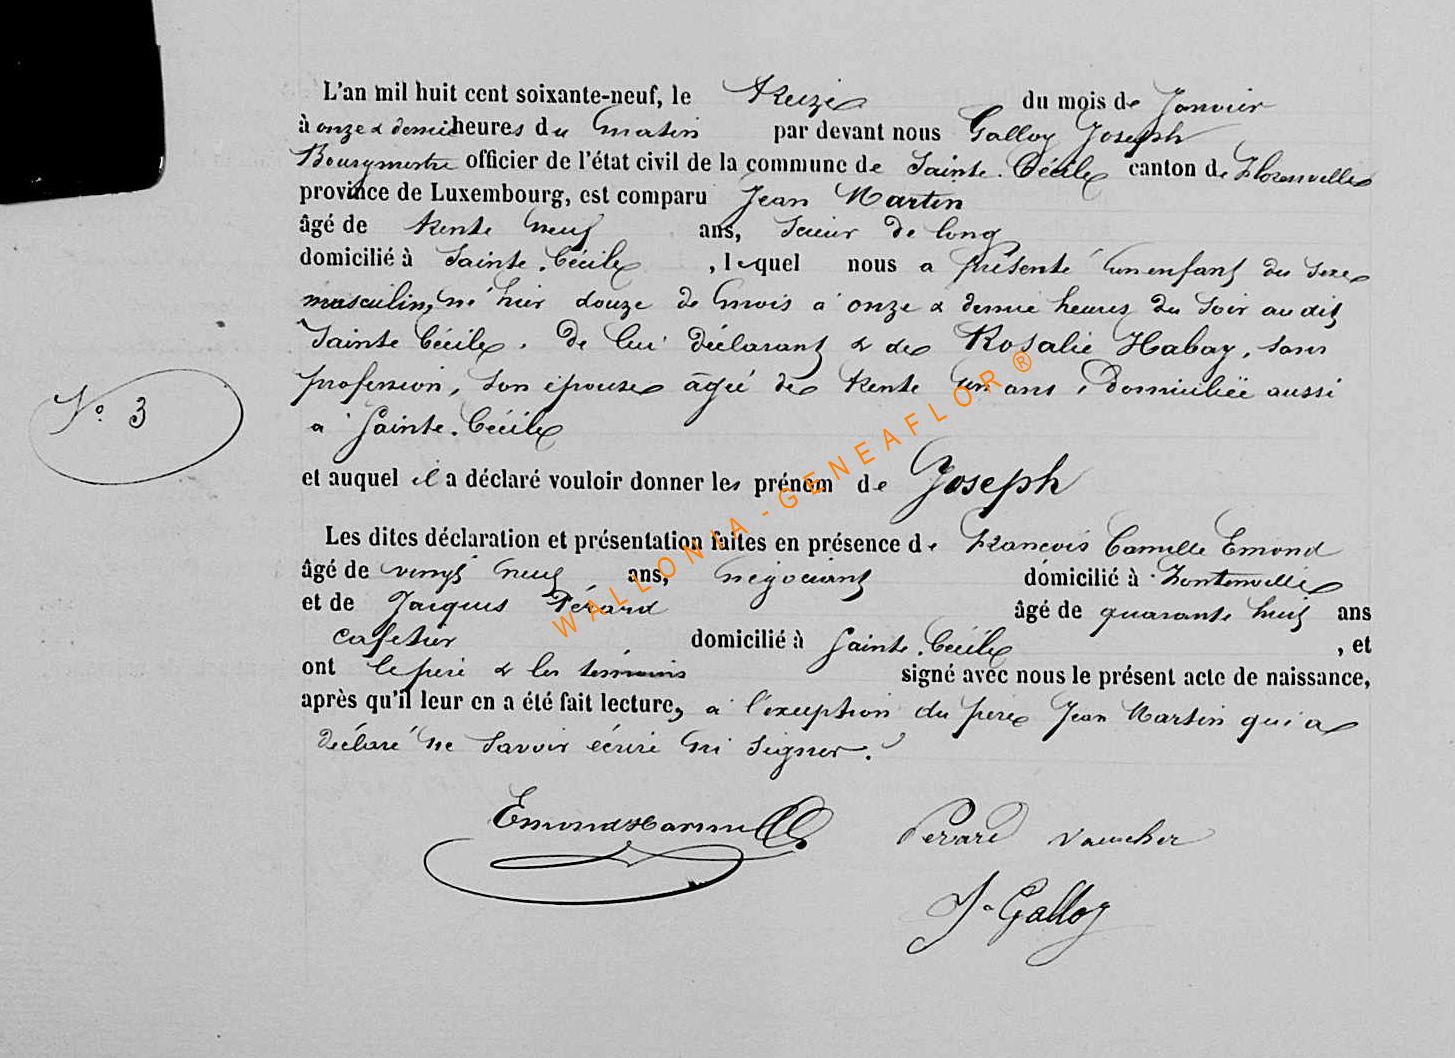 L'an mil huit cent soixante-neuf, le treize du mois de Janvier
à onze & demie heures du matin par devant nous Galloy Joseph
Bourgmestre officier de l'état civil de la commune de Sainte-Cécile canton de Florenville
province de Luxembourg, est comparu Jean Martin
âgé de trente neuf ans, scieur de long
domicilié à Sainte-Cécile , lequel nous a présenté un enfant du sexe
masculin, né hier douze de mois à onze & demie heures du soir audit
Sainte Cécile, de lui déclarant & de Rosalie Habay, sans
profession, son épouse âgée de trente un ans, domiciliée aussi
à Sainte-Cécile
N° 3
et auquel il a déclaré vouloir donner les prénom de Joseph
Les dites déclaration et présentation faites en présence de François Camille Emond
âgé de vingt neuf ans, négociant domicilié à
et de Jacques Pérard âgé de quarante huit ans
cafetier domicilié à Sainte-Cécile , et
ont le père & les témoins signé avec nous le présent acte de naissance,
après qu'il leur en a été fait lecture, à l'exception du père Jean Martin qui a
déclaré ne savoir écrire ni signer.
Emond
Perard Vaucher
J. Galloy
WALLONIA-GENEAFLOR®